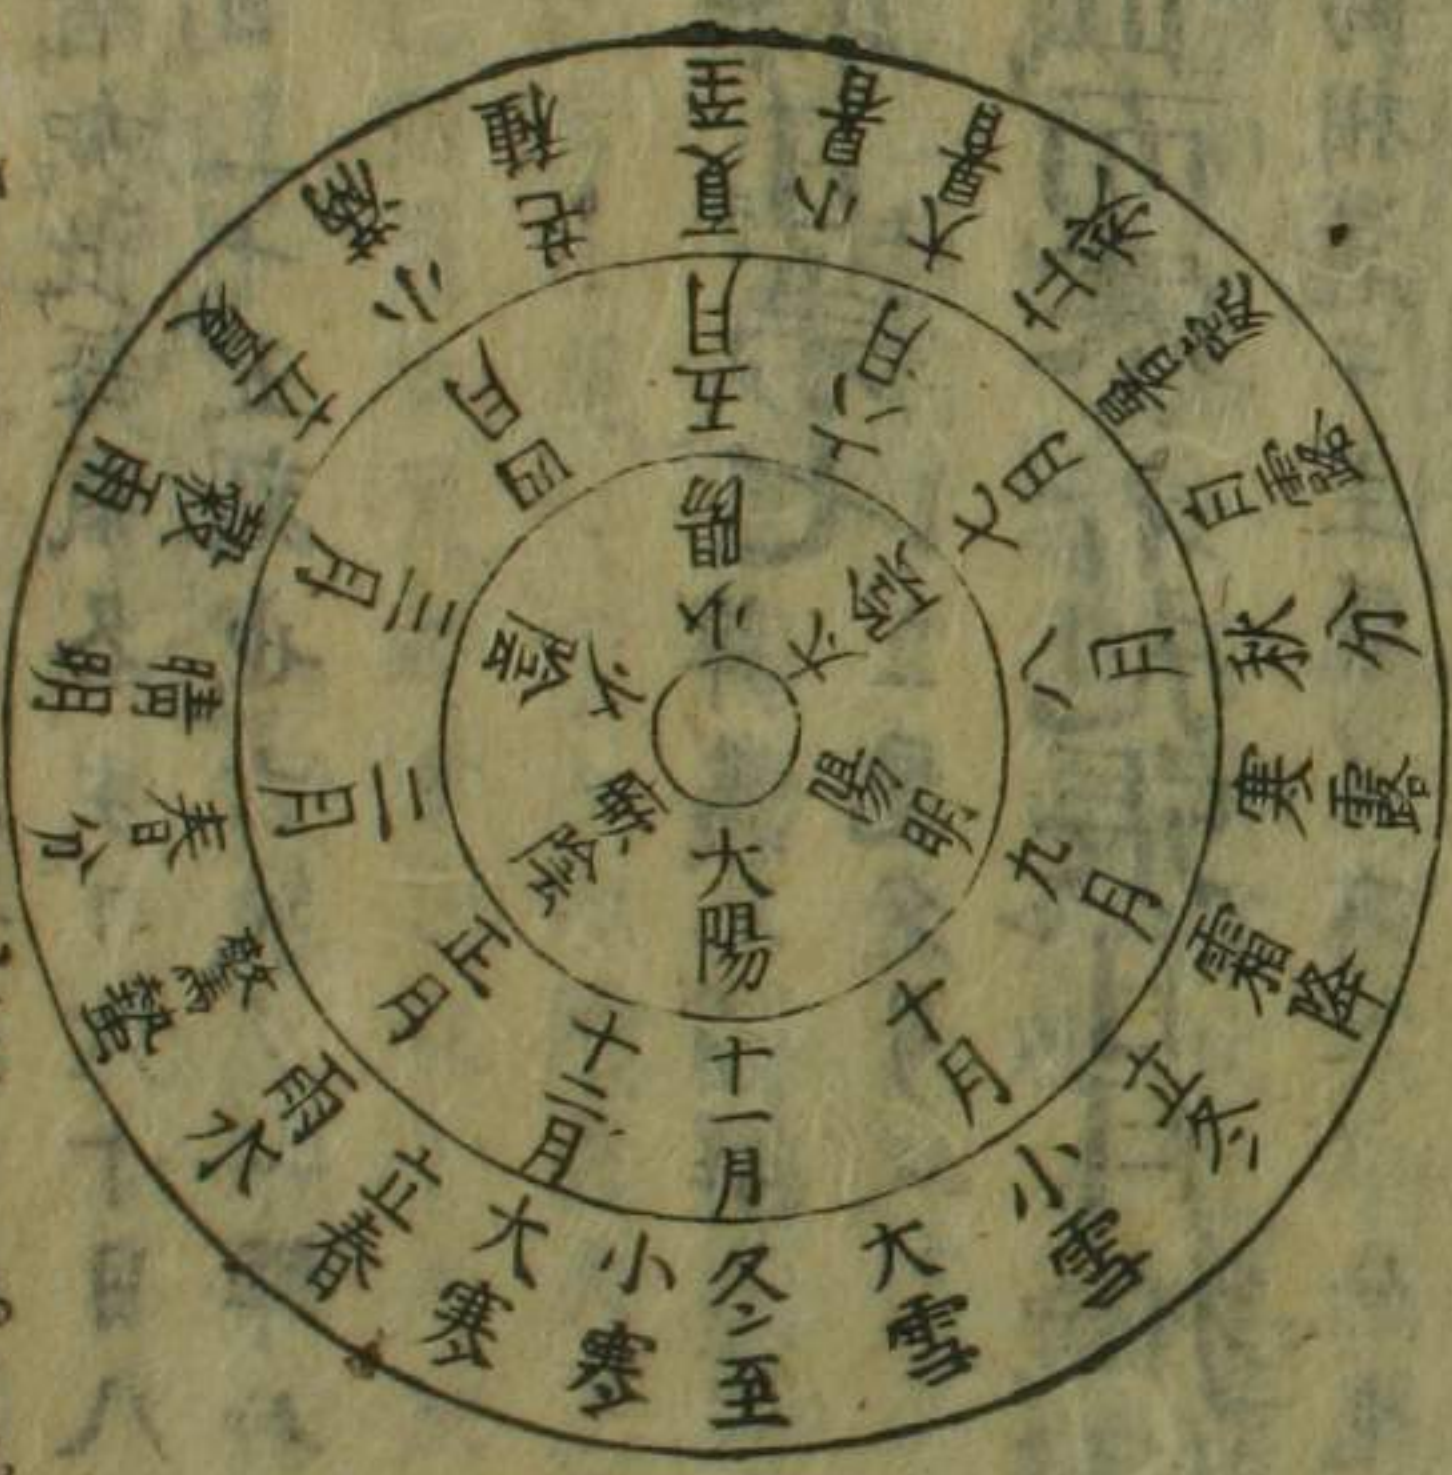 冬至
小寒
大寒
立春
雨水
驚蟄
春分
晴明
穀雨
立夏
小滿
芒種
夏至
小暑
大暑
立秋
暑處
白露
秋分
寒露
霜降
立冬
小雪
大雪
十一月
十二月
正月
二月
三月
四月
五月
六月
七月
八月
九月
十月
大陽
厥陰
少陰
小陽
太陰
陽明